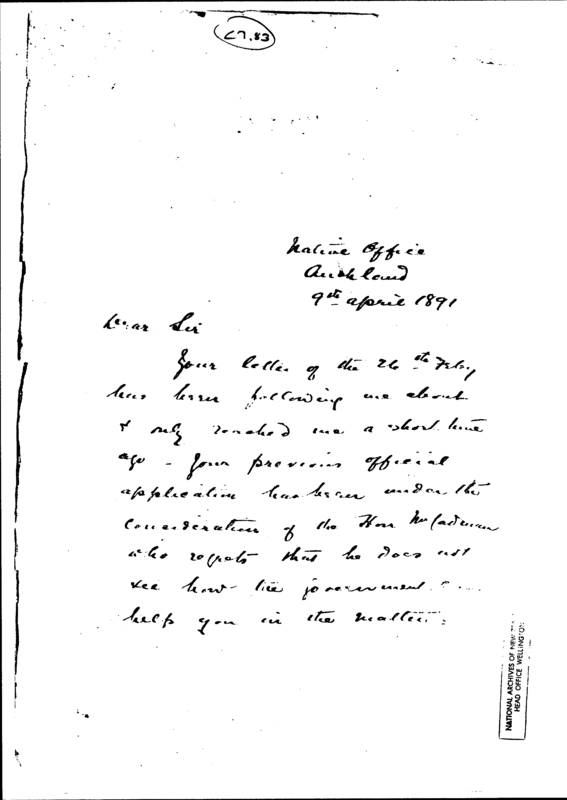 27.83
Native Office
Auckland
9th april 1891
Dear Sir
Your letter of the 26th Feby
has been following me about
& only reached me a short time
ago - Your previous official
application has been under the
consideration of the Hon Mr Cadman
who regrets that he does not
see how the government
help you in the matter.
NATIONAL ARCHIVES OF NEW
HEAD OFFICE WELLINGTON